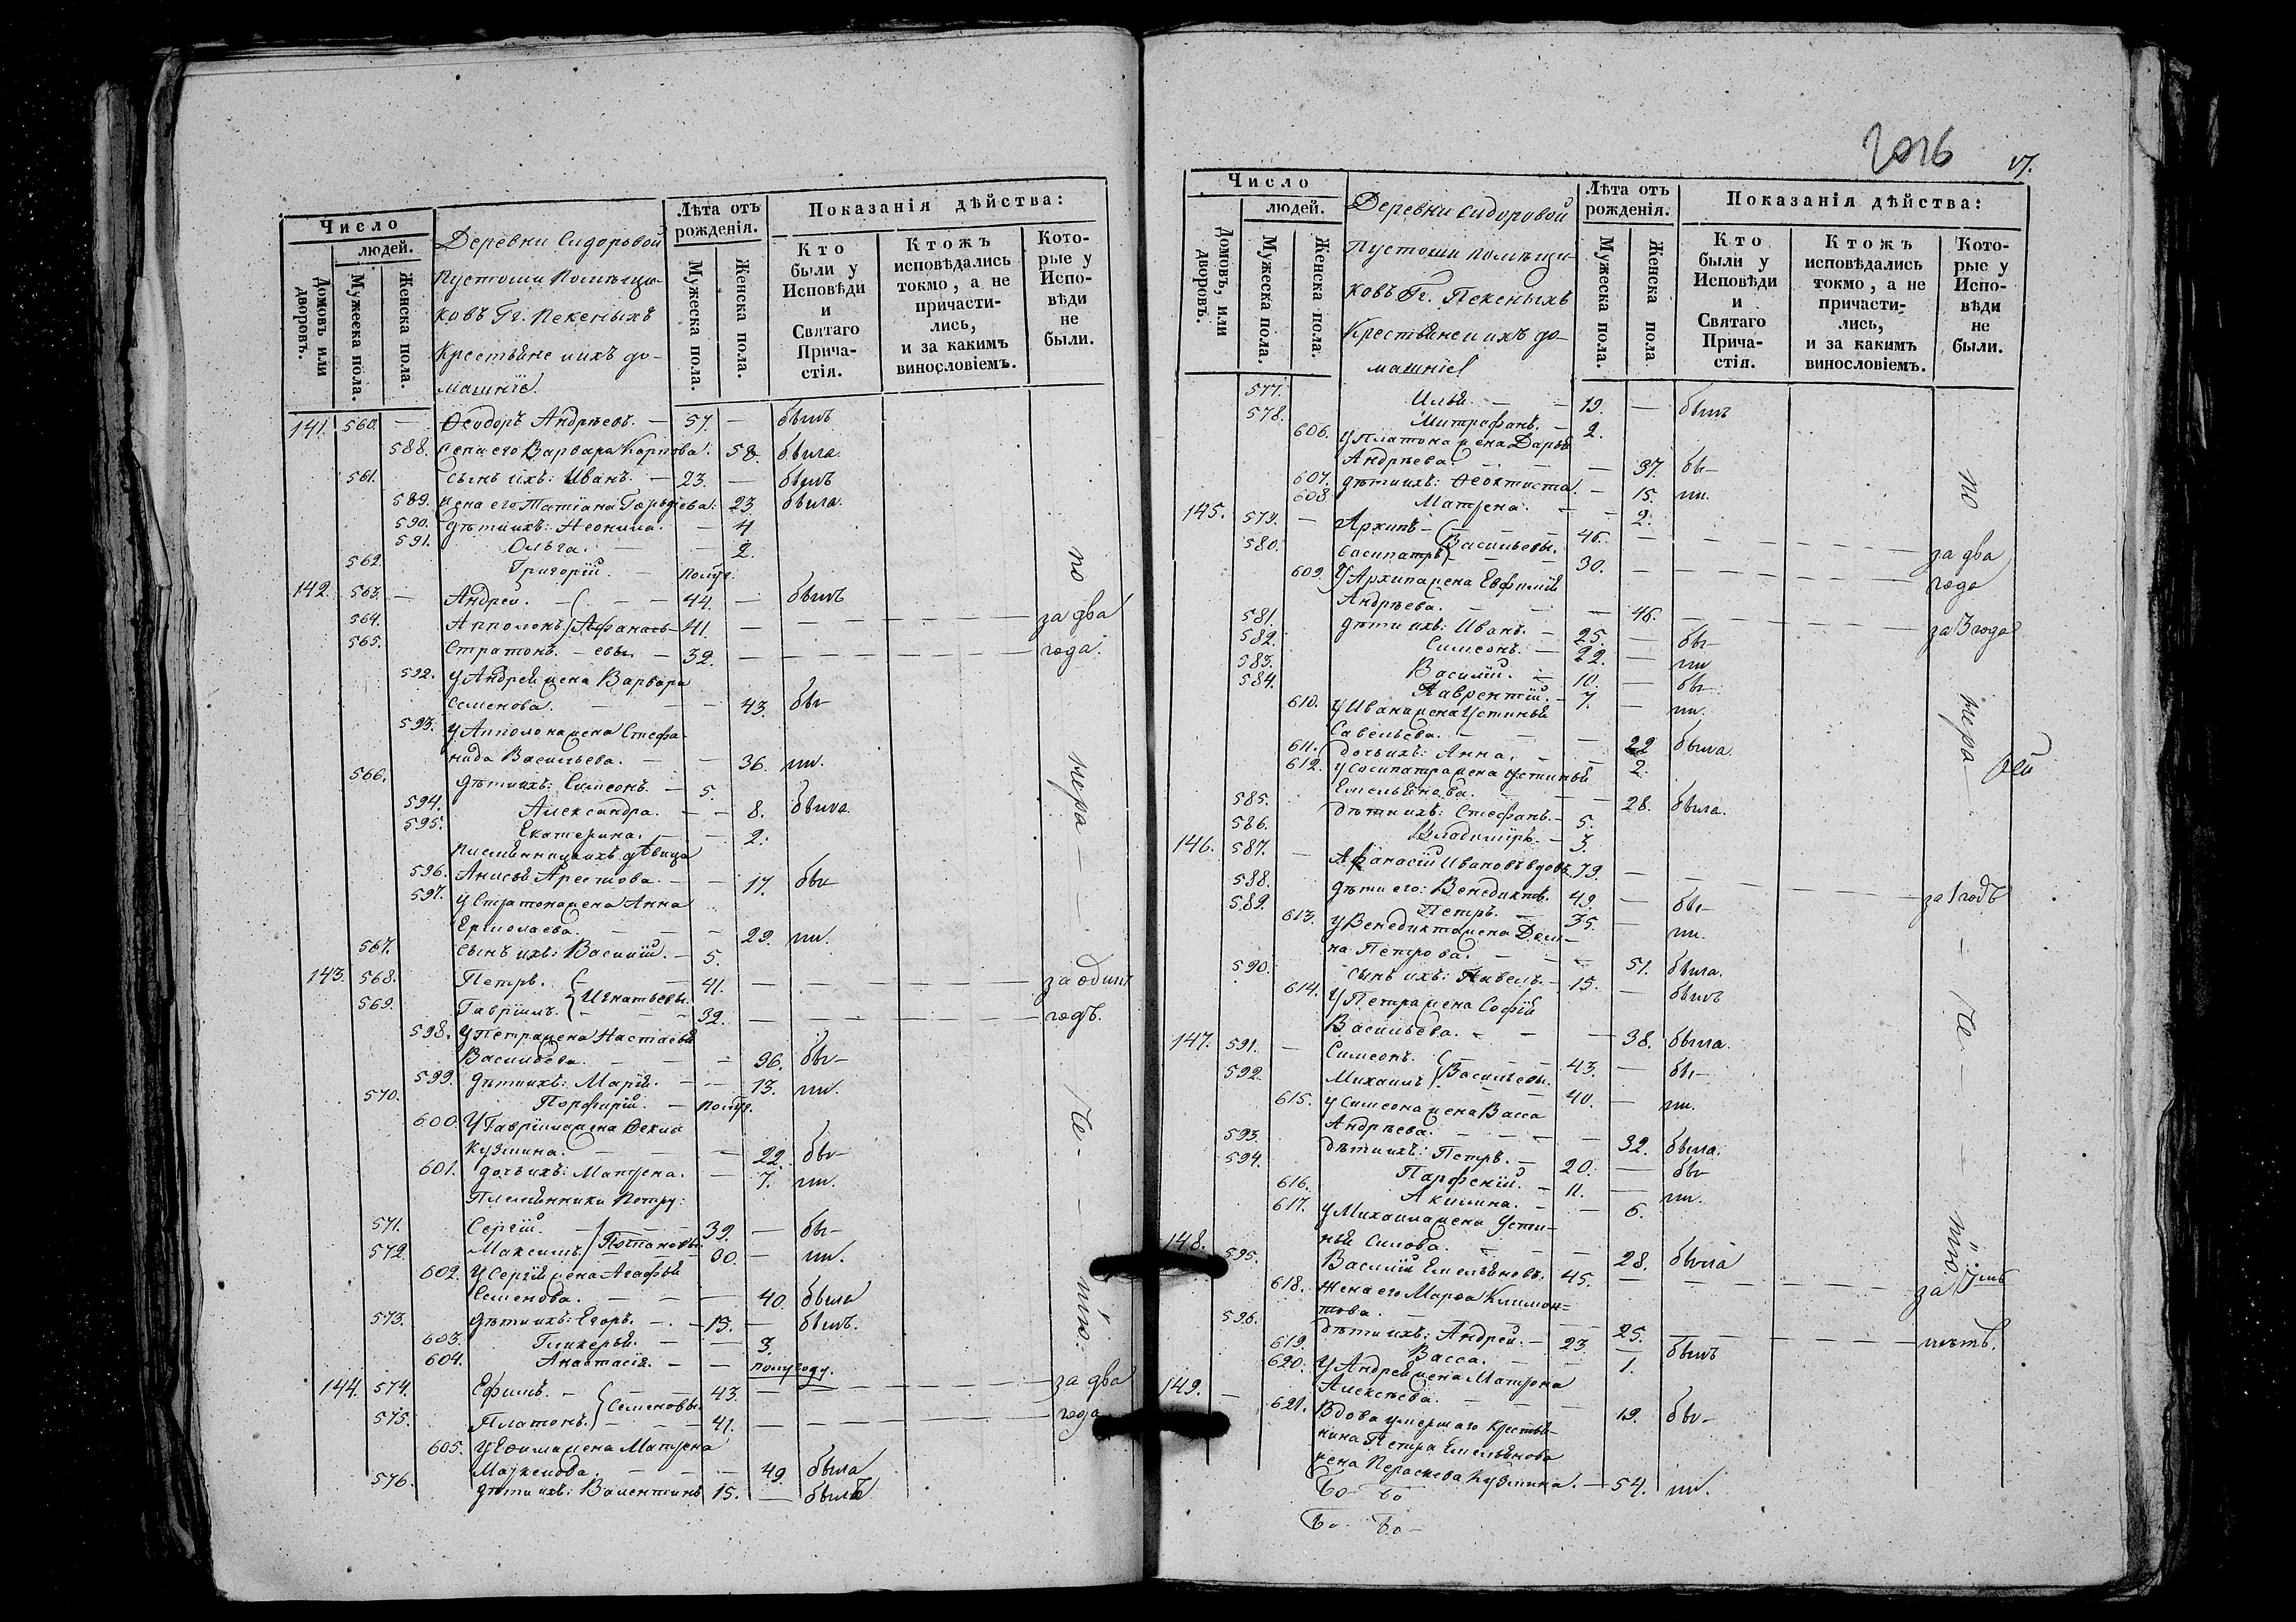 Число
людей.
Домовъ или дворовъ.
Мужеска пола.
Женска пола.
Деревни Сидоровой
Пустоши Помѣщи-
ковъ Гг. Пекеныхъ
Крестьяне и ихъ до-
машніе.
Лѣта отъ рожденія.
Мужеска пола.
Женска пола.
Показанія дѣйства:
Кто были у Исповѣди и Святаго Прича-стія.
Ктожъ исповѣдались токмо, а не причасти-лись, и за какимъ винословіемъ.
Кото-рые у Испо-вѣди не были.
141. 560. — Ѳеодоръ Андрѣевъ. — 57. — былъ
588. жена его Варвара Карпова. 58. была.
561. сынъ ихъ: Иванъ. — 23. — былъ
589. жена его Татіана Гордѣева. 23. была.
590. дѣти ихъ: Неонила. — 4
591. Ольга. — — 2.
562. Григорій. — полуг.
142. 563. — Андрей. — — 44. — былъ
564. Апполонъ. Афанась- 41. — — — — за два
565. Стратонъ. — евы — 32. — — — — года.
592. у Андрея жена Варвара
Семенова. — — 43. бы-
593. у Апполона жена Стефа-
нида Васильева. — — 36. ли.
566. дѣти ихъ: Симеонъ. — 5.
594. Александра. — — 8. была.
595. Екатерина. — — 2.
племянница ихъ дѣвица
596. Анисья Арестова. — — 17. бы-
597. у Стратона жена Анна
Ермолаева. — — 29. ли.
567. сынъ ихъ: Василій. — 5.
143. 568. Петръ. — — 41. — — — — за одинъ
569. Гавріилъ. Игнатьевы. 32. — — — — годъ.
598. у Петра жена Настасья
Васильева. — — 36. бы-
599. дѣти ихъ: Марія. — — 13. ли.
570. Порфирій. — полуг.
600. у Гавріила жена Ѳекла
Кузмина. — — 22. бы-
601. дочь ихъ: Матрена. — 7. ли.
Племянники Петру:
571. Сергій. — — 39. — бы-
572. Максимъ. Потаповы. 30. — ли.
602. у Сергія жена Агафья
Семенова. — — 40. была
573. дѣти ихъ: Егоръ. — 15. — былъ.
603. Гликерья. — — 3.
604. Анастасія. — — полугоду.
144. 574. Ефимъ. — — 43. — — — — за два
575. Платонъ. Семеновы. 41. — — — — года
605. у Ефима жена Матрена
— — 49. была
576. дѣти ихъ: Валентинъ 15. — былъ
по
чера
Число
людей.
Домовъ, или дворовъ.
Мужеска пола.
Женска пола.
Деревни Сидоровой
Пустоши помѣщи-
ковъ Гг. Пекеныхъ
Крестьяне и ихъ до-
машніе
Лѣта отъ рожденія.
Мужеска пола.
Женска пола
Показанія дѣйства:
Кто были у Исповѣди и Святаго Прича-стія.
Ктожъ исповѣдались токмо, а не причасти-лись, и за какимъ винословіемъ.
Кото-рые у Испо-вѣди не были.
577. Илья. — — 19. — былъ
578. Митрофанъ. — 2.
606. у Платона жена Дарья
Андрѣева. — — — 37. бы-
607. дѣти ихъ: Ѳеоктиста. — 15. ли.
608. Матрена. — — 2.
145. 579. — Архипъ — Васильевы. 46. — — — — за два
580. Сосипатръ — 30. — — — — года
609. у Архипа жена Евфимія
Андрѣева. — — — 46. — — — за 3 года
581. дѣти ихъ: Иванъ. — 25. — бы-
582. Симеонъ. — 22. — ли
583. Василій. — 10. — бы-
584. Лаврентій. — 7. — ли.
610. у Ивана жена Устинья
Савельева. — — 22 была
611. дочь ихъ: Анна. — — 2.
612. у Сосипатра жена Устинья
Емельянова. — — — 28. была.
585. дѣти ихъ: Стефанъ. — 5.
586. Владиміръ. — 3.
146. 587. — Афанасій Ивановъ вдовъ 79. — — — — за 1 годъ
588. дѣти его: Венедиктъ. 49. — бы-
589. Петръ. — 35. — ли.
613. у Венедикта жена Дом-
на Петрова. — — — 51. была.
590. сынъ ихъ: Павелъ. — 15. — былъ
614. у Петра жена Софія
Васильева. — — — 38. была.
147. 591. — Симеонъ. — — 43. — бы-
592. Михаилъ Васильевы. 40. — ли.
615. у Симеона жена Васса
Андрѣева. — — — 32. была.
593. дѣти ихъ: Петръ. — 20. — бы-
594. Парфеній. — 11. — ли.
616. Акилина. — — 6.
617. у Михаила жена Усти-
нья Силова. — — — 28. была
148. 595. Василій Емельяновъ. 45. — — — — за
618. жена его Марѳа Климон-
това. — — — 25. — — — лѣтъ.
596. дѣти ихъ: Андрей. — 23. — былъ
619. Васса. — — 1.
620. у Андрея жена Матрона
149. — Алексѣева. — — — 19. бы-
621. Вдова умершаго крестья-
нина Петра Емельянова
жена Параскева Кузмина. — 54. ли.
по
чера